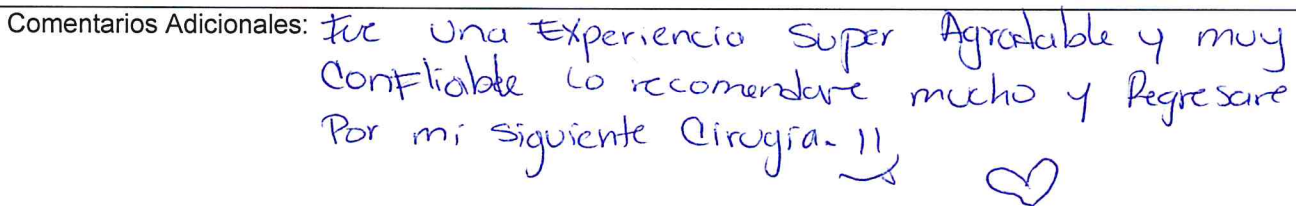 Comentarios Adicionales: Fue una Experiencia Super Agradable y muy
Confiable lo recomendare mucho y Regresare
Por mi siguiente Cirugía. !!